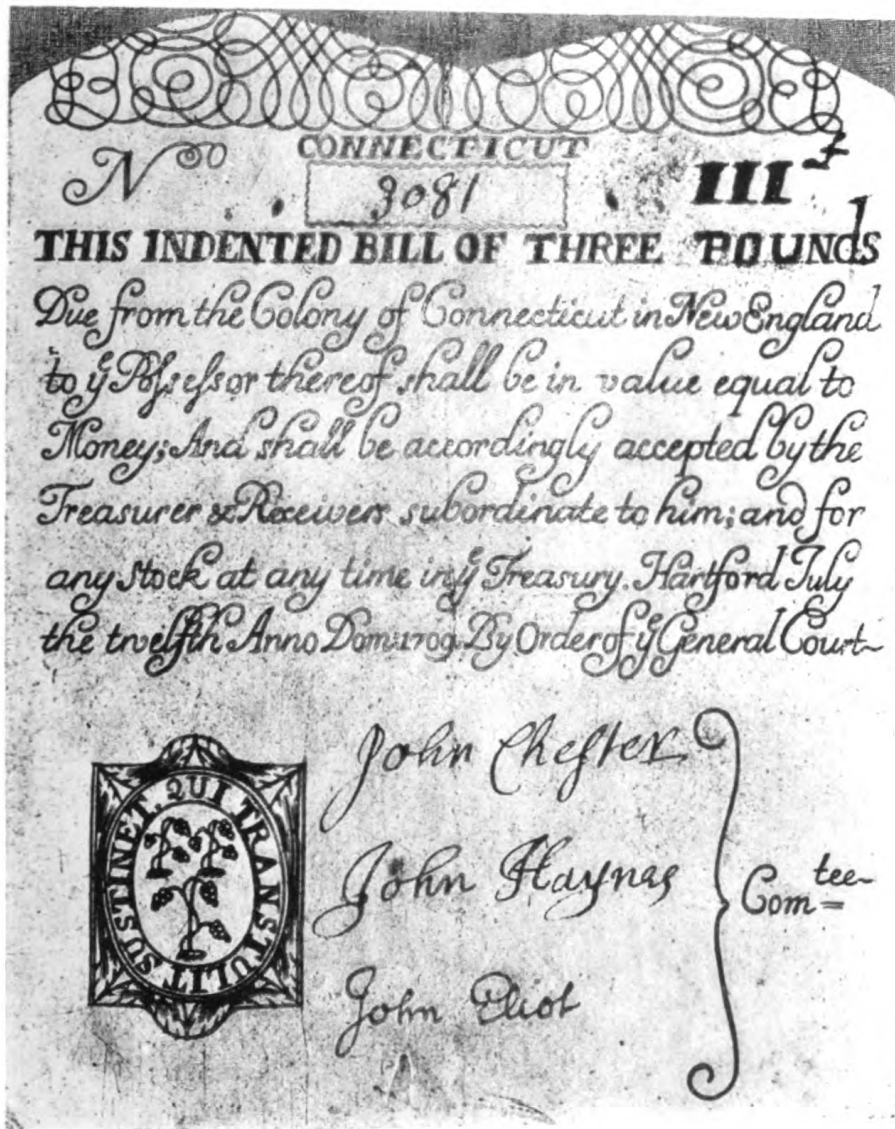 CONNECTICUT
No 3081 III £
THIS INDENTED BILL OF THREE POUNDS
Due from the Colony of Connecticut in New England
to ye Poſseſsor thereof shall be in value equal to
Money; And shall be accordingly accepted by the
Treasurer & Receivers subordinate to him; and for
any Stock at any time in ye Treasury. Hartford July
the twelfth Anno Dom: 1709. By Order of ye General Court~
SUSTINET. QUI TRANSTULIT.
John Cheſter
John Haynes
John Eliot
Comtee-